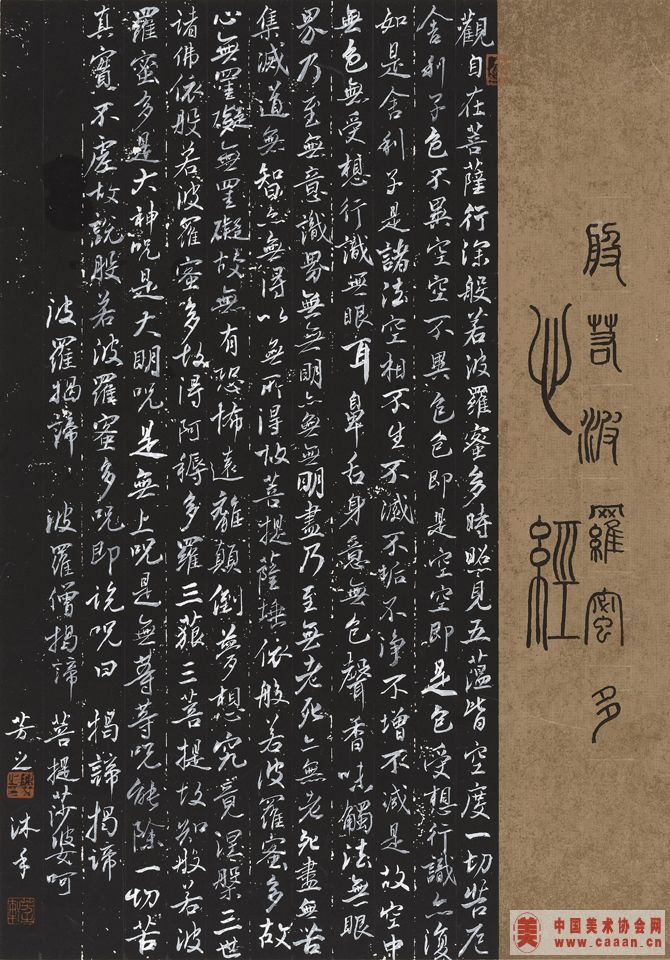 般若波羅蜜多
心經
觀自在菩薩行深般若波羅蜜多時照見五蘊皆空度一切苦厄
舍利子色不異空空不異色色即是空空即是色受想行識亦復
如是舍利子是諸法空相不生不滅不垢不净不增不减是故空中
無色無受想行識無眼耳鼻舌身意無色聲香味觸法無眼
界乃至無意識界無無明亦無無明盡乃至無老死亦無老死盡無苦
集滅道無智亦無得以無所得故菩提薩埵依般若波羅蜜多故
心無罣礙無罣礙故無有恐怖遠離顛倒夢想究竟涅槃三世
諸佛依般若波羅蜜多故得阿耨多羅三藐三菩提故知般若波
羅蜜多是大神呪是大明呪是無上呪是無等等呪能除一切苦
真實不虛故説般若波羅蜜多呪即説呪曰 揭諦揭諦
波羅揭諦 波羅僧揭諦 菩提莎婆呵
芳之 沐手
美
中国美术协会网
www.caaan.cn